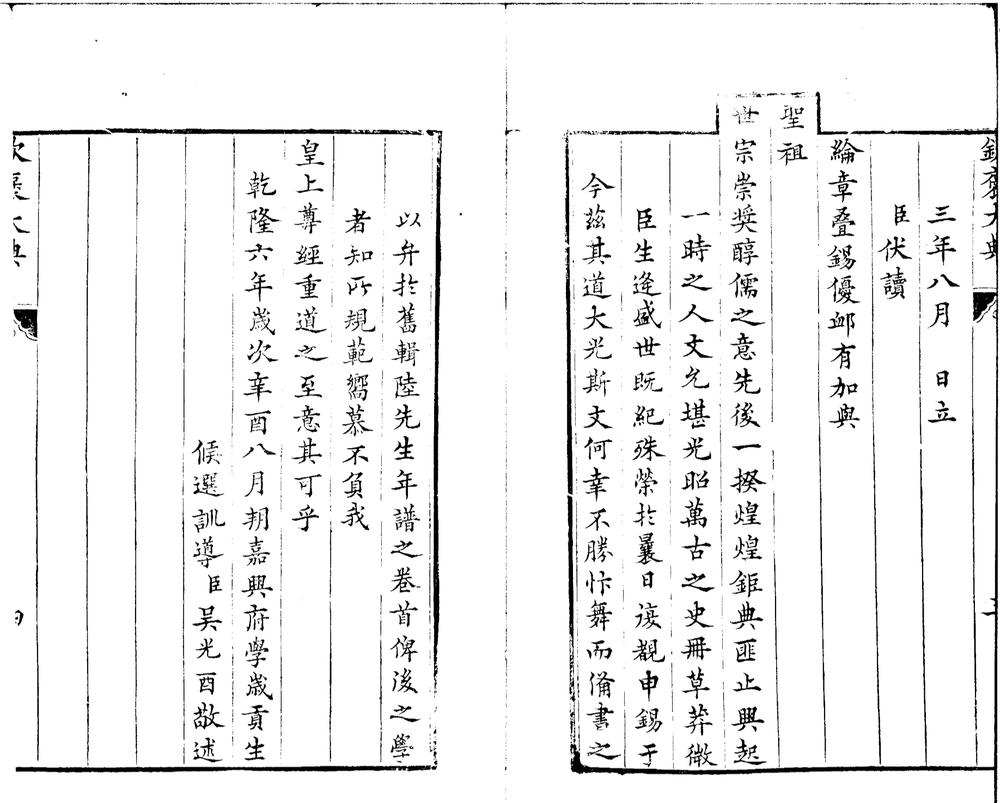 欽褒大典
三年八月　日立
臣伏讀
綸章疊錫優䘏有加與
聖祖
世宗崇奬醇儒之意先後一揆煌煌鉅典匪止興起
一時之人文允堪光昭萬古之史冊草莽微
臣生逢盛世既紀殊榮於曩日復覩申錫于
今茲其道大光斯文何幸不勝忭舞而備書之
以弁於舊輯陸先生年譜之卷首俾後之學
者知所規範嚮慕不負我
皇上尊經重道之至意其可乎
乾隆六年歲次辛酉八月朔嘉興府學歲貢生
候選訓導臣吴光酉敬述